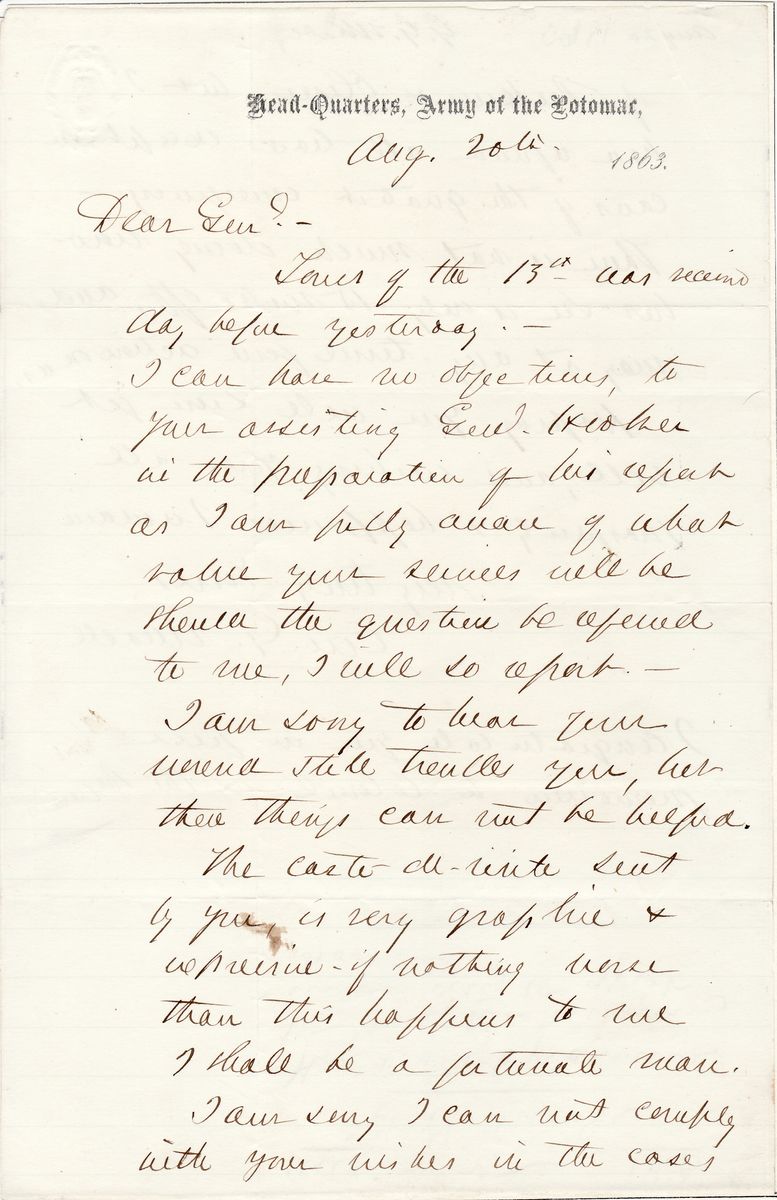 Head-Quarters, Army of the Potomac,
Aug. 20th. 1863.
Dear Genl. —
Yours of the 13th was received
day before yesterday. —
I can have no objections, to
your assisting Genl. Hooker
in the preparation of his report
as I am fully aware of what
value your services will be
should the question be referred
to me, I will so report. —
I am sorry to hear your
wound still troubles you, but
these things can not be helped.
The carte-de-visite sent
by you, is very graphic &
expressive - if nothing worse
than this happens to me
I shall be a fortunate man.
I am sorry I can not comply
with your wishes in the cases